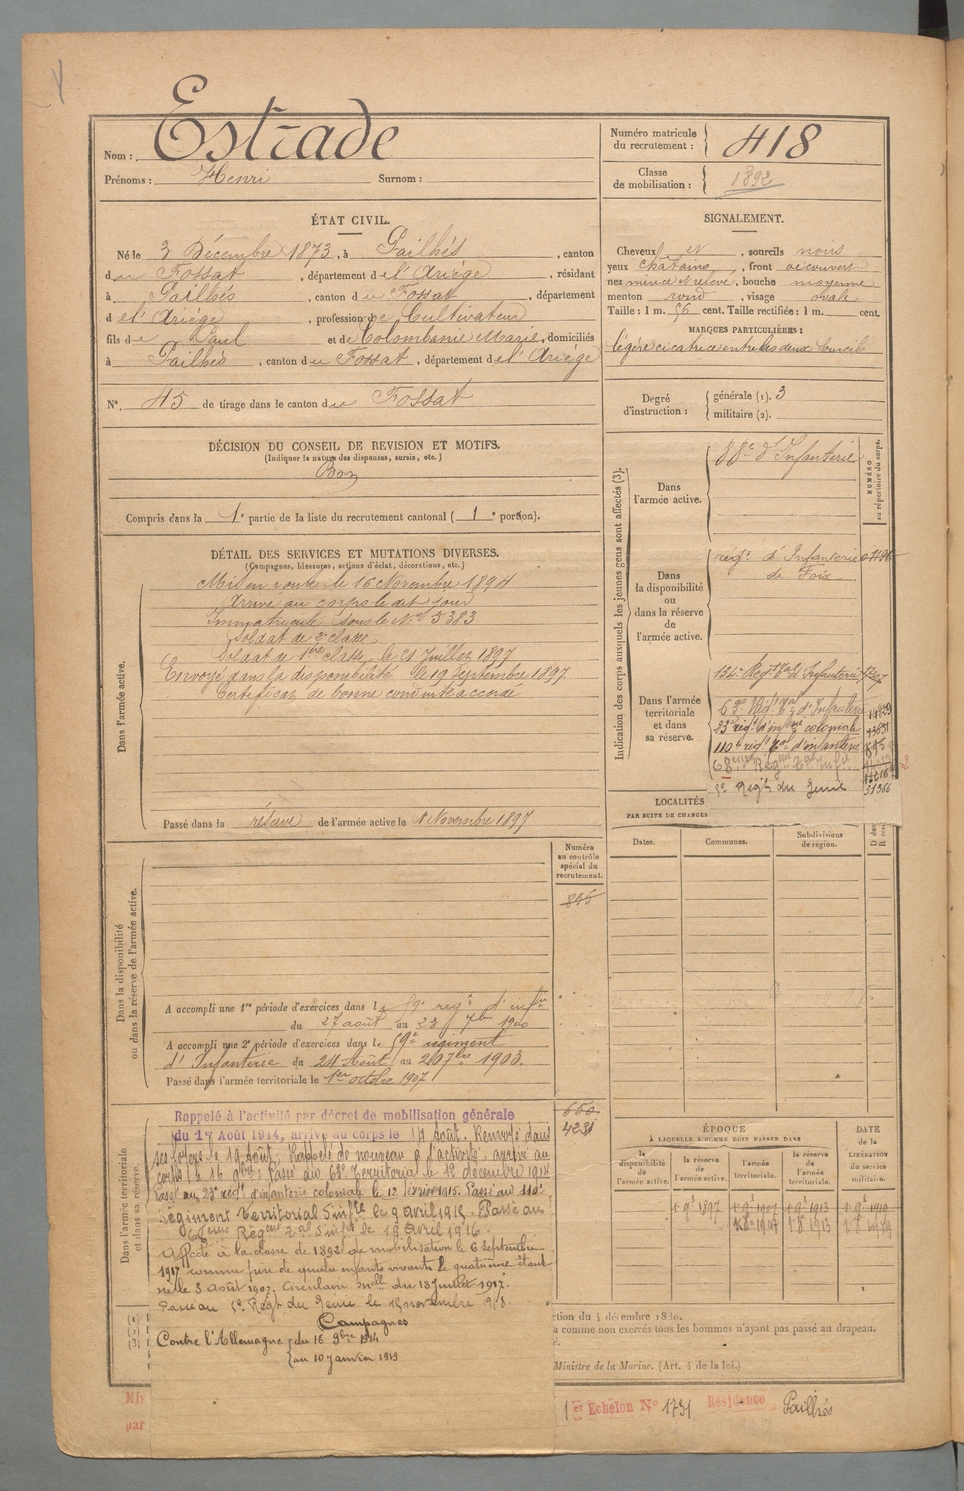 Nom : Estrade
Prénoms : Henri Surnom :
Numéro matricule du recrutement : 418
Classe de mobilisation : 1892
ÉTAT CIVIL.
Né le 3 Décembre 1873, à Pailhés, canton
du Fossat, département de l'Ariége, résidant
à Pailhés, canton du Fossat, département
de l'Ariége, profession de Cultivateur
fils de Paul et de Colombanie Marie, domiciliés
à Pailhés, canton du Fossat, département de l'Ariége
N° 45 de tirage dans le canton du Fossat
SIGNALEMENT.
Cheveux et, sourcils noirs
yeux châtains, front découvert
nez mince et relevé, bouche moyenne
menton rond, visage ovale
Taille : 1 m. 56 cent. Taille rectifiée : 1 m. cent.
MARQUES PARTICULIÈRES :
légère cicatrice entre les deux sourcils
Degré d'instruction : générale (1). 3
militaire (2).
DÉCISION DU CONSEIL DE REVISION ET MOTIFS.
(Indiquer la nature des dispenses, sursis, etc.)
Bon
Compris dans la 1e partie de la liste du recrutement cantonal ( 1e portion).
DÉTAIL DES SERVICES ET MUTATIONS DIVERSES.
(Campagnes, blessures, actions d'éclat, décorations, etc.)
Dans l'armée active.
Mis en route le 16 Novembre 1894
Arrivé au corps le dit jour
Immatriculé sous le N° 5383
Soldat de 2e classe
Soldat de 1ère classe le 21 Juillet 1897
Envoyé dans la disponibilité le 19 Septembre 1897
Certificat de bonne conduite accordé
Passé dans la réserve de l'armée active le 1 Novembre 1897
Indication des corps auxquels les jeunes gens sont affectés (3).
NUMÉRO au répertoire du corps.
Dans l'armée active.
88e d'Infanterie
Dans la disponibilité ou dans la réserve de l'armée active.
regt d'Infanterie
de Foix
Dans l'armée territoriale et dans sa réserve.
134e Regt tal d'Infanterie
63e Régt tal d'Infanterie
23e régt d'infrie coloniale
110e régt tal d'infanterie
68ème Régent tal Infie
5e Regt du Genie 31366
LOCALITÉS
PAR SUITE DE CHANGE
Dates. Communes. Subdivisions de région.
Dans la disponibilité ou dans la réserve de l'armée active.
Numéro au contrôle spécial du recrutement.
A accompli une 1re période d'exercices dans le 59e regt d'infie
du 27 août au 23 7bre 1900
A accompli une 2e période d'exercices dans le 59e régiment
d'Infanterie du 24 Août au 20 7bre 1903.
Passé dans l'armée territoriale le 1er octobre 1907
650
4231
Dans l'armée territoriale et dans sa réserve.
Rappelé à l'activité par décret de mobilisation générale
du 1er Août 1914, arrivé au corps le 14 Août. Renvoyé dans
ses foyers le 19 Août. Rappelé de nouveau à l'activité, arrivé au
corps le 16 9bre. Passé au 63e Territorial le 12 décembre 1914
Passé au 23e regt d'infanterie coloniale le 12 février 1915. Passé au 110e
régiment territorial d'infie le 9 avril 1915. Passé au
68ème Régent tal d'infie le 19 Avril 1916.
Affecté à la classe de 1892 de mobilisation le 6 septembre
1917 comme père de quatre enfants vivants le quatrième étant
né le 3 août 1907. Circulaire mlle du 13 juillet 1917.
Passé au 5e Regt du Genie le 15 novembre 1918.
Campagnes
Contre l'Allemagne du 16 9bre 1914
au 10 janvier 1919
ÉPOQUE
À LAQUELLE L'HOMME DOIT PASSER DANS
DATE de la LIBÉRATION du service militaire.
la disponibilité de l'armée active. la réserve de l'armée active. l'armée territoriale. la réserve de l'armée territoriale.
1 9e 1897 1 9e 1907 1 9e 1913 1 9e 1919
ction du 4 décembre 1889.
a comme non exercés tous les hommes n'ayant pas passé au drapeau.
Ministre de la Marine. (Art. 4 de la loi.)
Mis
par
1er Echelon N° 1731 Résidence Pailhés